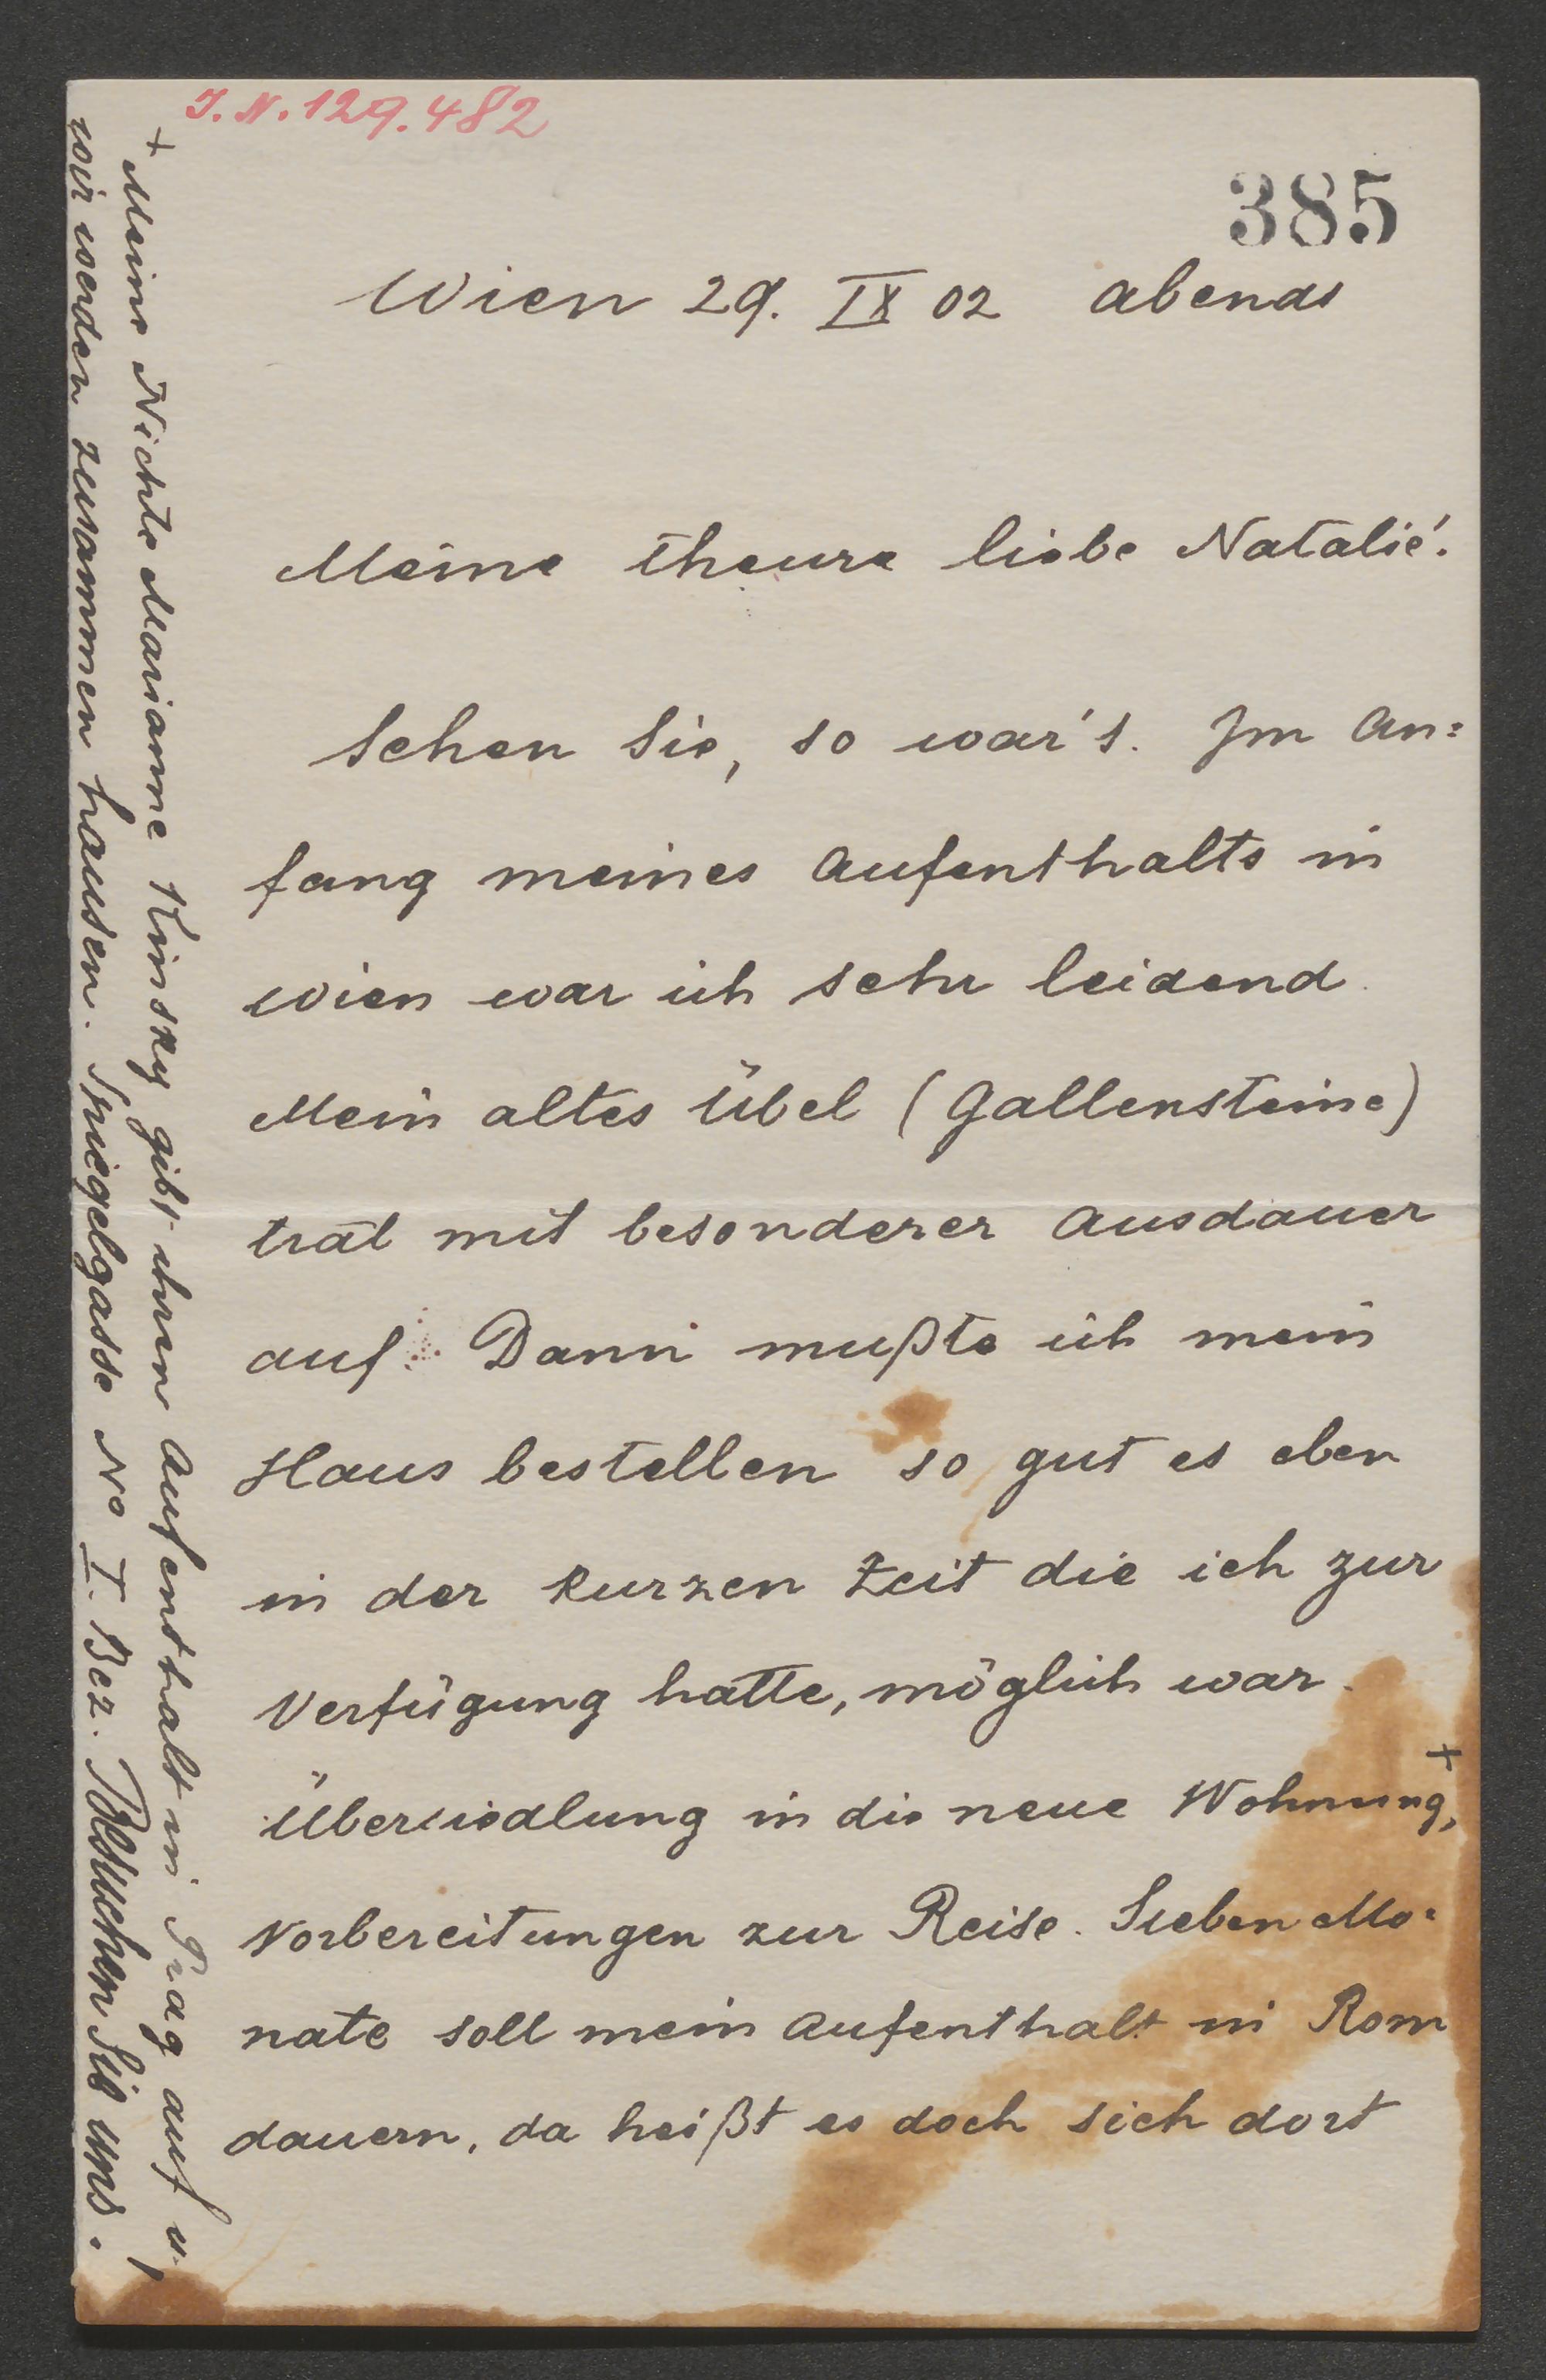 J. N. 129.482
385
Wien 29. IX 02 abends
Meine theure liebe Natalié.
Sehen Sie, so war's. Im An=
fang meines Aufenthalts in
Wien war ich sehr leidend.
Mein altes Übel (Gallensteine)
trat mit besonderer Ausdauer
auf. Dann mußte ich mein
Haus bestellen so gut es eben
in der kurzen Zeit die ich zur
Verfügung hatte, möglich war.
Übersiedlung in die neue Wohnung,+
Vorbereitungen zur Reise. Sieben Mo=
nate soll mein Aufenthalt in Rom
dauern, da heißt es doch sich dort
+ Meine Nichte Marianne Kinsky gibt ihren Aufenthalt in Prag auf u.
wir werden zusammen hausen. Spiegelgasse No I. Bez. Besuchen Sie uns.